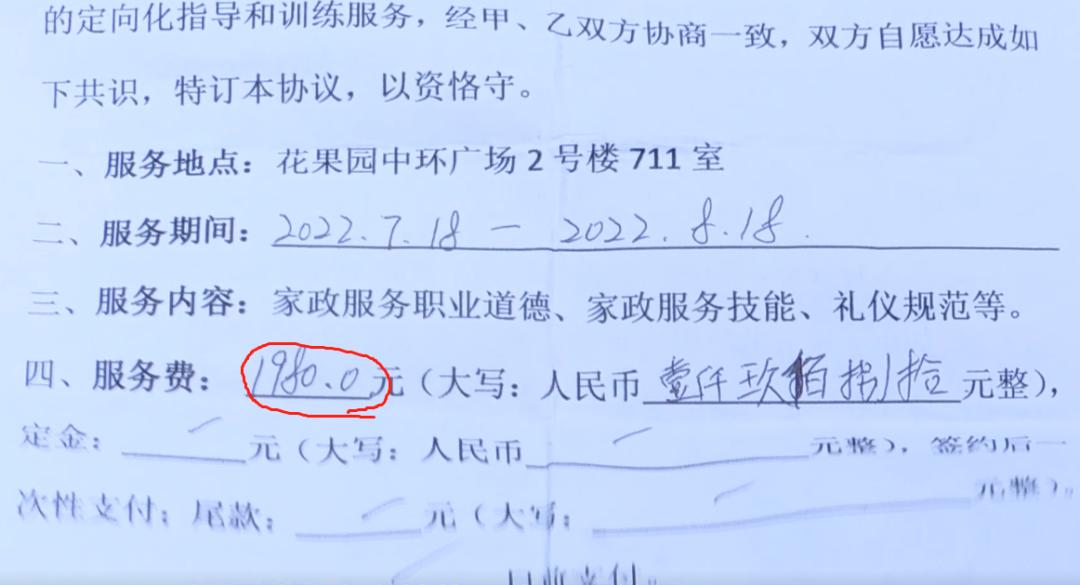 的定向化指导和训练服务，经甲、乙双方协商一致，双方自愿达成如
下共识，特订本协议，以资恪守。
一、服务地点：花果园中环广场2号楼711室
二、服务期间：2022.7.18 — 2022.8.18.
三、服务内容：家政服务职业道德、家政服务技能、礼仪规范等。
四、服务费：1980.0元（大写：人民币壹仟玖佰捌拾元整），
定金：元（大写：人民币元整），签约后一
次性支付；尾款：元（大写：元整）。
支付。